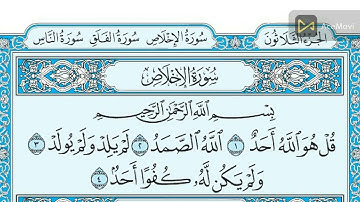 الجزء الثلاثون
سورة الإخلاص سورة الفلق سورة الناس
AceMovi
سورة الإخلاص
بِسْمِ ٱللَّهِ ٱلرَّحْمَٰنِ ٱلرَّحِيمِ
قُلْ هُوَ ٱللَّهُ أَحَدٌ ١ ٱللَّهُ ٱلصَّمَدُ ٢ لَمْ يَلِدْ وَلَمْ يُولَدْ ٣
وَلَمْ يَكُن لَّهُۥ كُفُوًا أَحَدٌۢ ٤